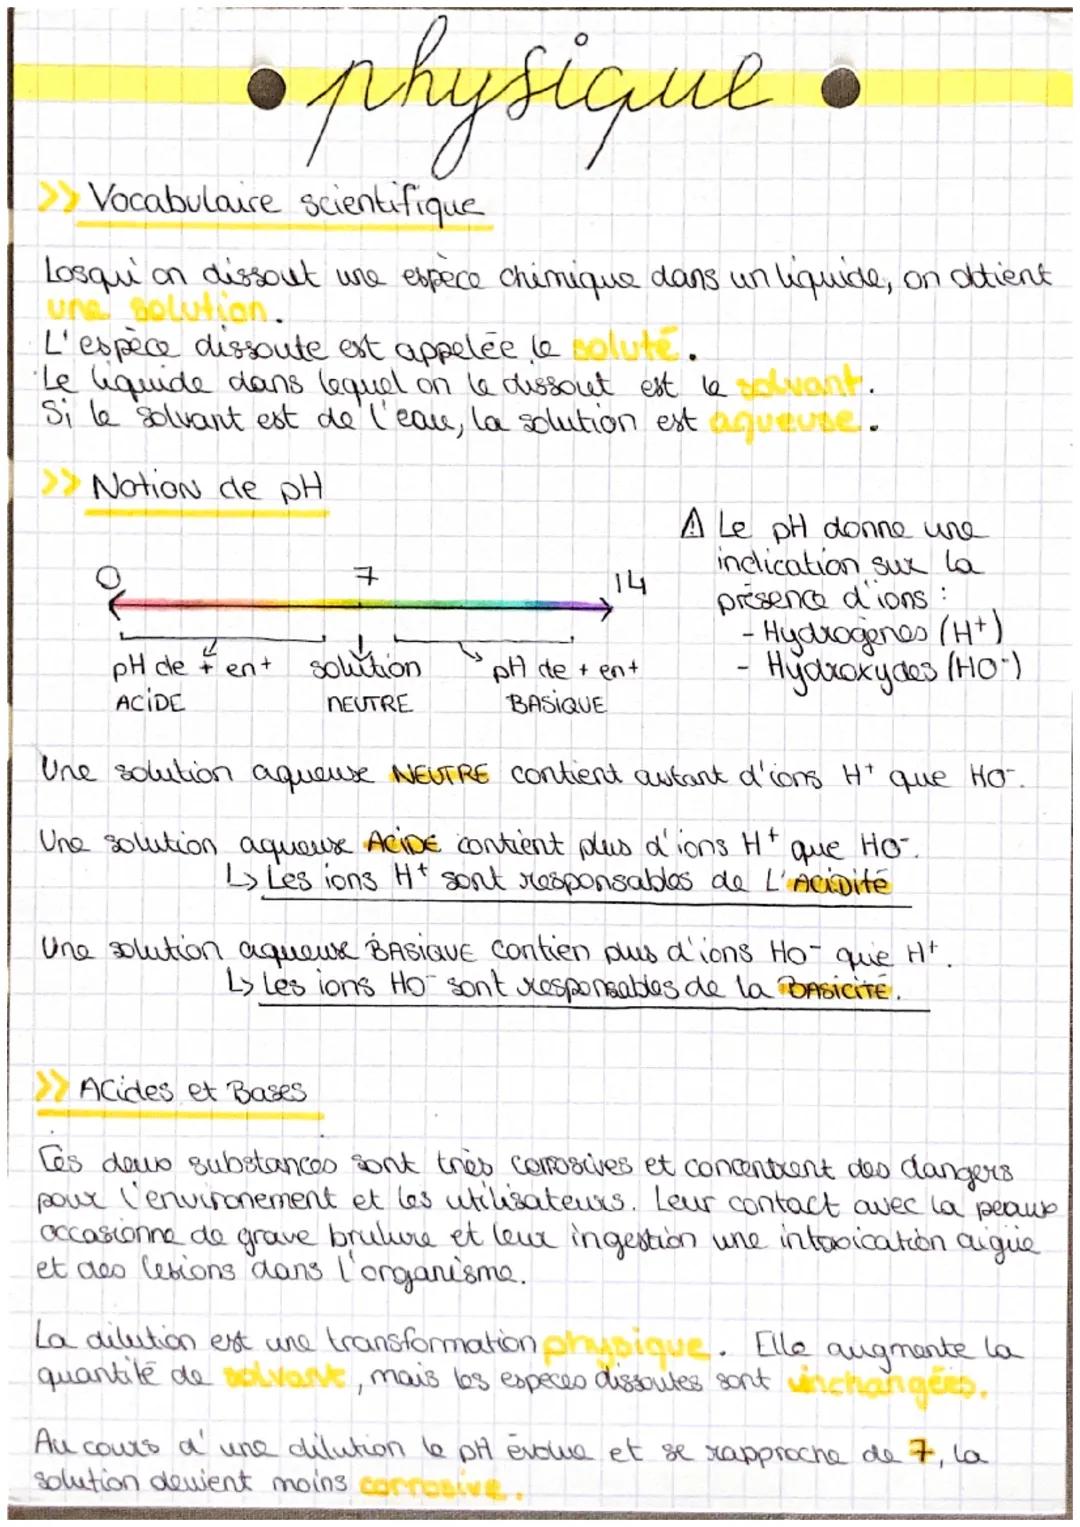 physique
>> Vocabulaire scientifique
Losqu'on dissout une espèce chimique dans un liquide, on obtient
une solution.
L'espèce dissoute est appelée le soluté.
Le liquide dans lequel on le dissout est le solvant.
Si le solvant est de l'eau, la solution est aqueuse.
>> Notion de pH
0 7 14
pH de + en +
ACIDE
solution
NEUTRE
pH de + en +
BASIQUE
⚠ Le pH donne une
indication sur la
présence d'ions :
- Hydrogènes (H+)
- Hydroxydes (HO-)
Une solution aqueuse NEUTRE contient autant d'ions H+ que HO-.
Une solution aqueuse ACIDE contient plus d'ions H+ que HO-.
↳ Les ions H+ sont responsables de L'ACIDITÉ
Une solution aqueuse BASIQUE contien plus d'ions HO- que H+.
↳ Les ions HO- sont responsables de la BASICITÉ.
>> Acides et Bases
Ces deux substances sont très corrosives et concentrent des dangers
pour l'environement et les utilisateurs. Leur contact avec la peaux
occasionne de grave brulure et leur ingestion une intoxication aigüe
et des lésions dans l'organisme.
La dilution est une transformation physique. Elle augmente la
quantité de solvant, mais les espèces dissoutes sont inchangées.
Au cours d'une dilution le pH évolue et se rapproche de 7, la
solution devient moins corrosive.